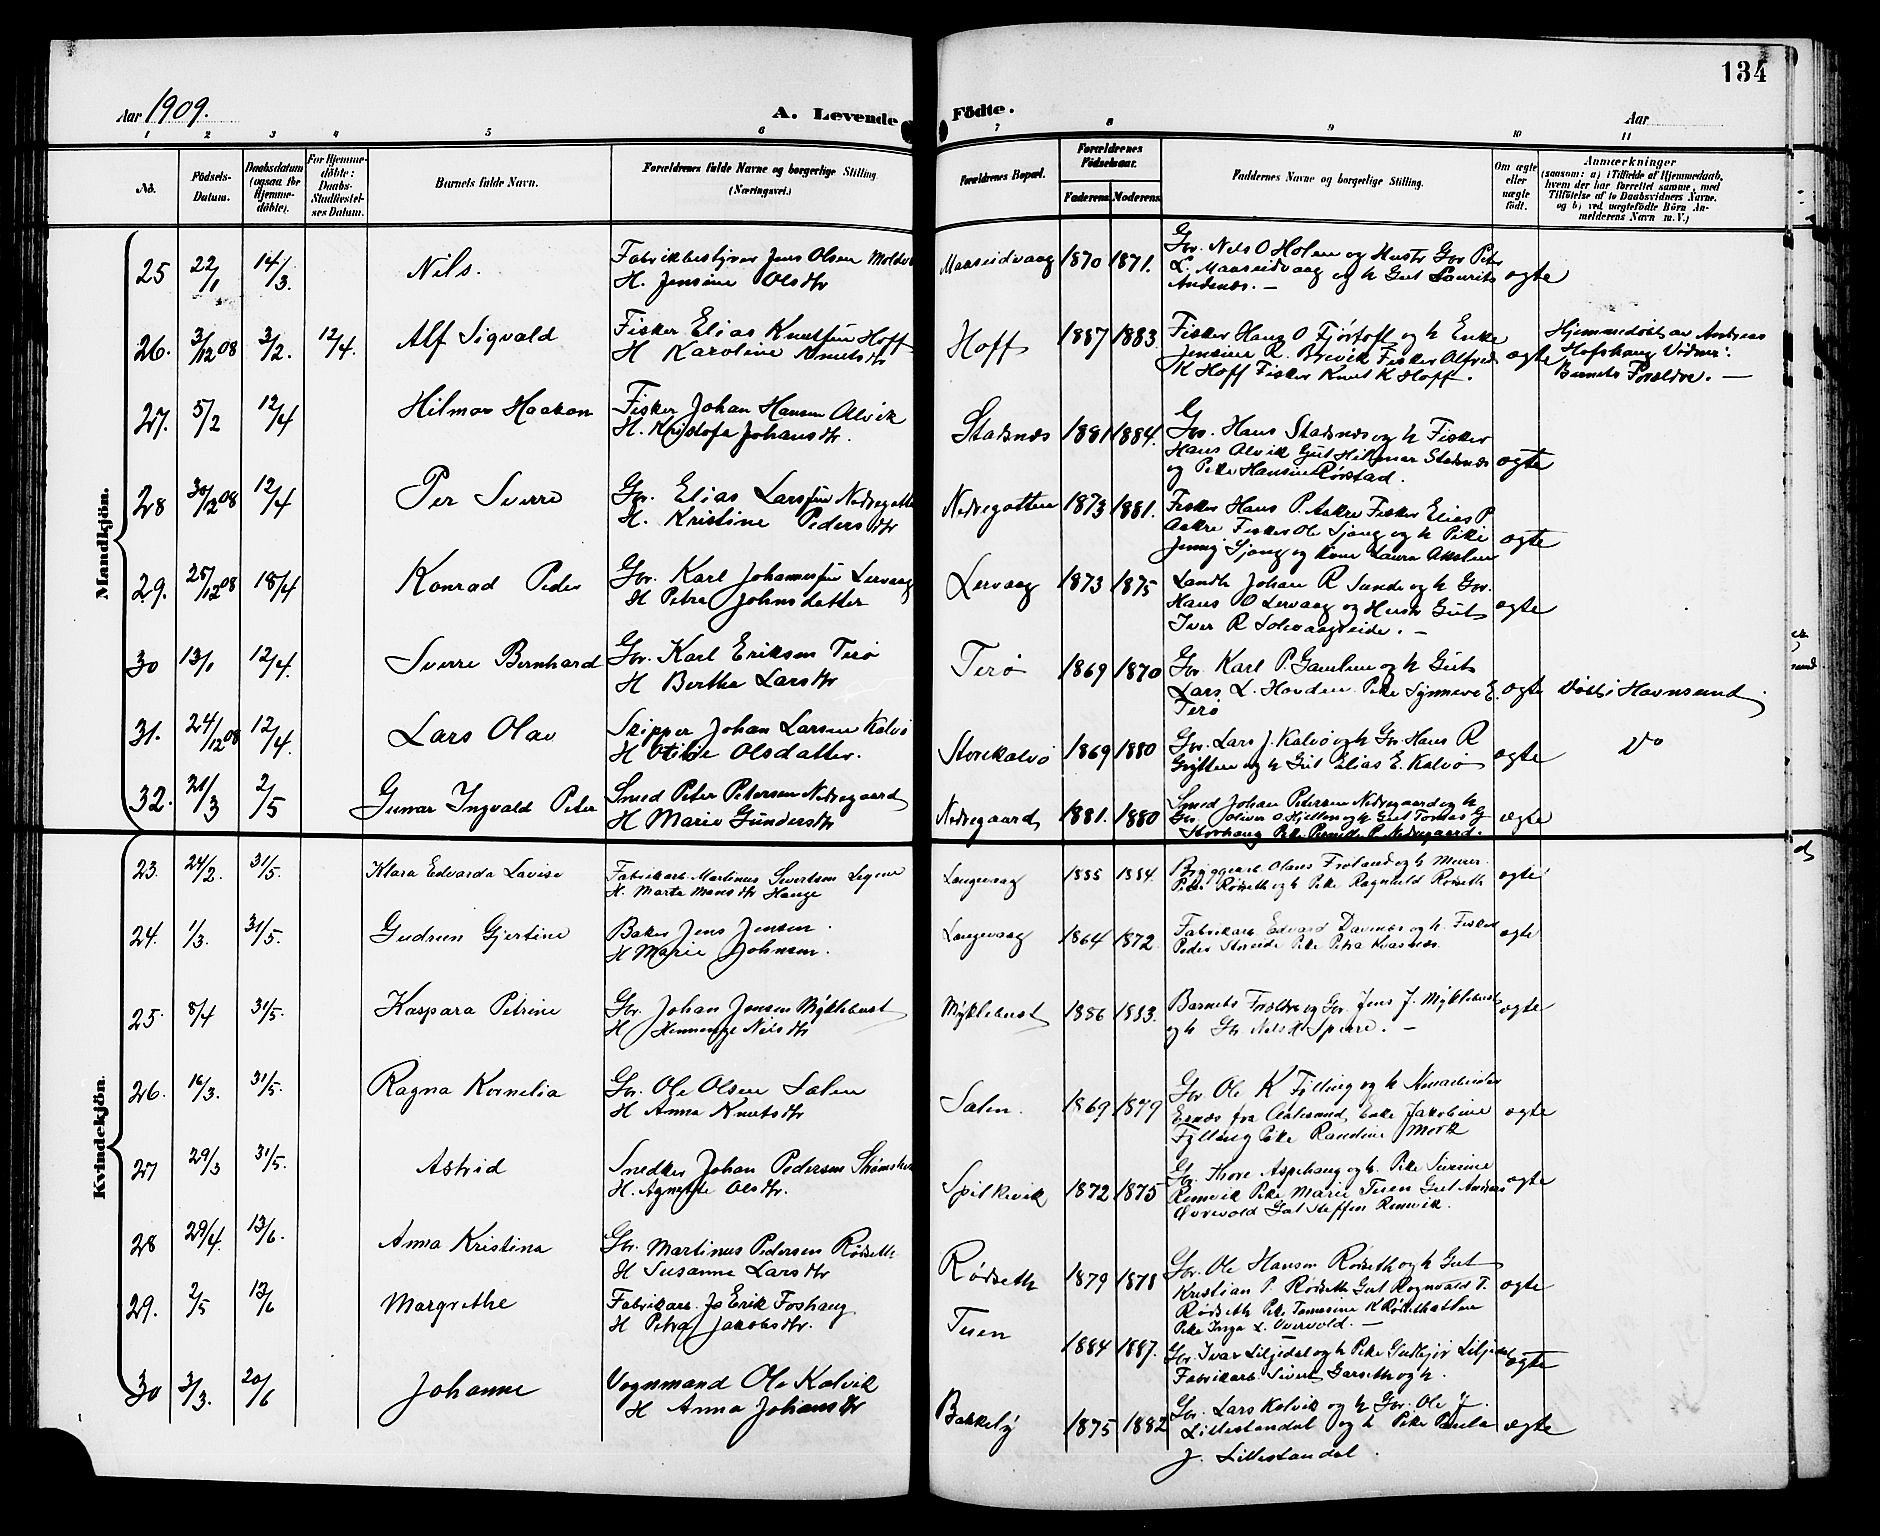 134
Aar 1909.
A. Levende Födte.
Aar
1 2 3 4 5 6 7 8 9 10 11
No.
Födsels-Datum.
Daabsdatum (ogsaa for Hjemmedöbte).
For Hjemmedöbte: Daabs-Stadfæstelses Datum.
Barnets fulde Navn.
Forældrenes fulde Navne og borgerlige Stilling. (Næringsvei.)
Forældrenes Bopæl.
Forældrenes Födselsaar.
Faderens. Moderens.
Faddernes Navne og borgerlige Stilling.
Om ægte eller uægte födt.
Anmærkninger
(saasom: a) i Tilfælde af Hjemmedaab, hvem der har forrettet samme, med Tilföielse af to Daabsvidners Navne, og b) ved uægtefödte Börn Anmelderens Navn m. V.)
Mandkjön.
25 22/1 14/3. Nils.
Fabrikbestyrer Jens Olsen
H. Jensine Olsdtr
Maaseidvaag 1870 1871.
Gbr. Nils O Holen og Hustr Gbr Peter
L. Maaseidvaag og h Gut Laurits
Andenæs. —
ægte
26. 3/12 08 3/2. 12/4. Alf Sigvald
Fisker Elias Knutsen Hoff
H Karoline Knutsdtr
Hoff 1887 1883.
Fisker Hans O Fjörtoft og h Enke
Jensine R. Brevik Fisker Alfred
K Hoff Fisker Knut K Hoff.
ægte
Hjemmedöbt av Andreas
Hofshaug Vidner:
Barnets Forældre. —
27. 5/2 12/4 Hilmar Haakon
Fisker Johan Hansen Alvik
H. Kristofa Johansdtr.
Stadsnes 1881 1884.
Gbr. Hans Stadsnes og h Fisker
Hans Alvik Gut Hilmar Stadsnes
og Pike Hansine Rörstad.
ægte
28 30/12 08 12/4 Per Sverre
Gbr. Elias Larssen
H. Kristine Pedersdtr
1873 1881.
Fisker Hans P. Aakre Fisker Elias P
Aakre Fisker Ole og h Pike
Jenny og Kone Laura
ægte
29. 25/12 08 18/4 Konrad Peder
Gbr. Karl Johannesen Lervaag
H Petra Johnsdatter
Lervaag 1873 1875
Landh Johan R Sunde og h Gbr.
Hans O Lervaag og Hustr Gut
Iver R Solevaagseide. —
ægte
30 13/1 12/4. Sverre Bernhard
Gbr. Karl Eriksen Terö
H Berthe Larsdtr
Terö 1869 1870
Gbr Karl P. Gamlem og h Gut
Lars L. Hovden Pike Synneve E.
Terö
ægte
Döbt i Havnsund.
31. 24/12 08 12/4. Lars Olav
Skipper Johan Larsen Kalvö
H Otilie Olsdatter.
Storekalvö 1869 1880
Gbr. Lars J. Kalvö og h Gbr Hans R
Gryttene og h Gut Elias E. Kalvö
ægte
Do
32. 21/3 2/5 Gunar Ingvald Peter
Smed Peter Petersen Nedregaard
H Marie Gundersdtr
Nedregaard 1881. 1880
Smed Johan Petersen Nedregaard og h
Gbr. Oliver O Hjellen og h Gut Tomas G
Storhaug Pike Pernille P Nedregaard.
ægte
Kvindekjön.
23. 24/2. 31/5. Klara Edvarda Lovise
Fabrikarb. Martinus Sivertsen
H. Marta Monsdtr Hauge
Langevaag 1885 1884.
Bryggearb. Olaus Froland og h Murer
Peter Rödseth og h Pike Ragnhild Rödseth
ægte
24. 1/3. 31/5. Gudrun Gjertine
Baker Jens Jensen.
H Marie Johnsen.
Langevaag 1864 1872.
Fabrikarb Edvard Davenæs og h. Fisker
Peder Pike Petra Kvasnes.
ægte
25. 8/4 31/5. Kaspara Petrine
Gbr. Johan Jensen Myklebust
H Nilsdtr
Myklebust 1886 1883.
Barnets Forældre og Gbr. Jens J. Myklebust
og h Gbr Nils H Sperre. —
ægte
26. 16/3. 31/5. Ragna Kornelia
Gbr. Ole Olsen Salen
H Anna Knutsdtr
Salen. 1869 1879
Gbr Ole K Fylling og h
fra Aalesund Enke Jakobine
Fylling Pike Randine Mork
ægte
27 29/3 31/5. Astrid
Snedker Johan Pedersen
H. Agnethe Olsdtr.
Spilkevik 1872 1875
Gbr. Thore Aspehaug og h. Pike Sverine
Remvik Pike Marie Tuen Gut Anders
Overvold Gut Steffen Remvik.
ægte
28 29/4. 13/6. Anna Kristina
Gbr. Martinus Pedersen Rödseth
H Susanne Larsdtr
Rödseth 1879 1878
Gbr. Ole Hansen Rödseth og h Gut
Kristian P. Rödseth Gut Ragnvald T.
Rödseth Pike Tomasine K
Pike Inga L. Overvold. —
ægte
29. 2/5 13/6 Margrethe
Fabrikarb. Erik Foshaug
H Petra Jakobsdtr.
Tuen 1884 1887.
Gbr. Ivar Liljedal og h Pike
Fabrikarb Sivert Garseth og h.
ægte
30 3/3. 20/6 Johanne
Vognmand Ole Kalvik
H Anna Johansdtr
Bakkeby 1875 1882
Gbr. Lars Kalvik og h Gbr. Ole J.
Lillestandal og h Pike Paula
J. Lillestandal.
ægte